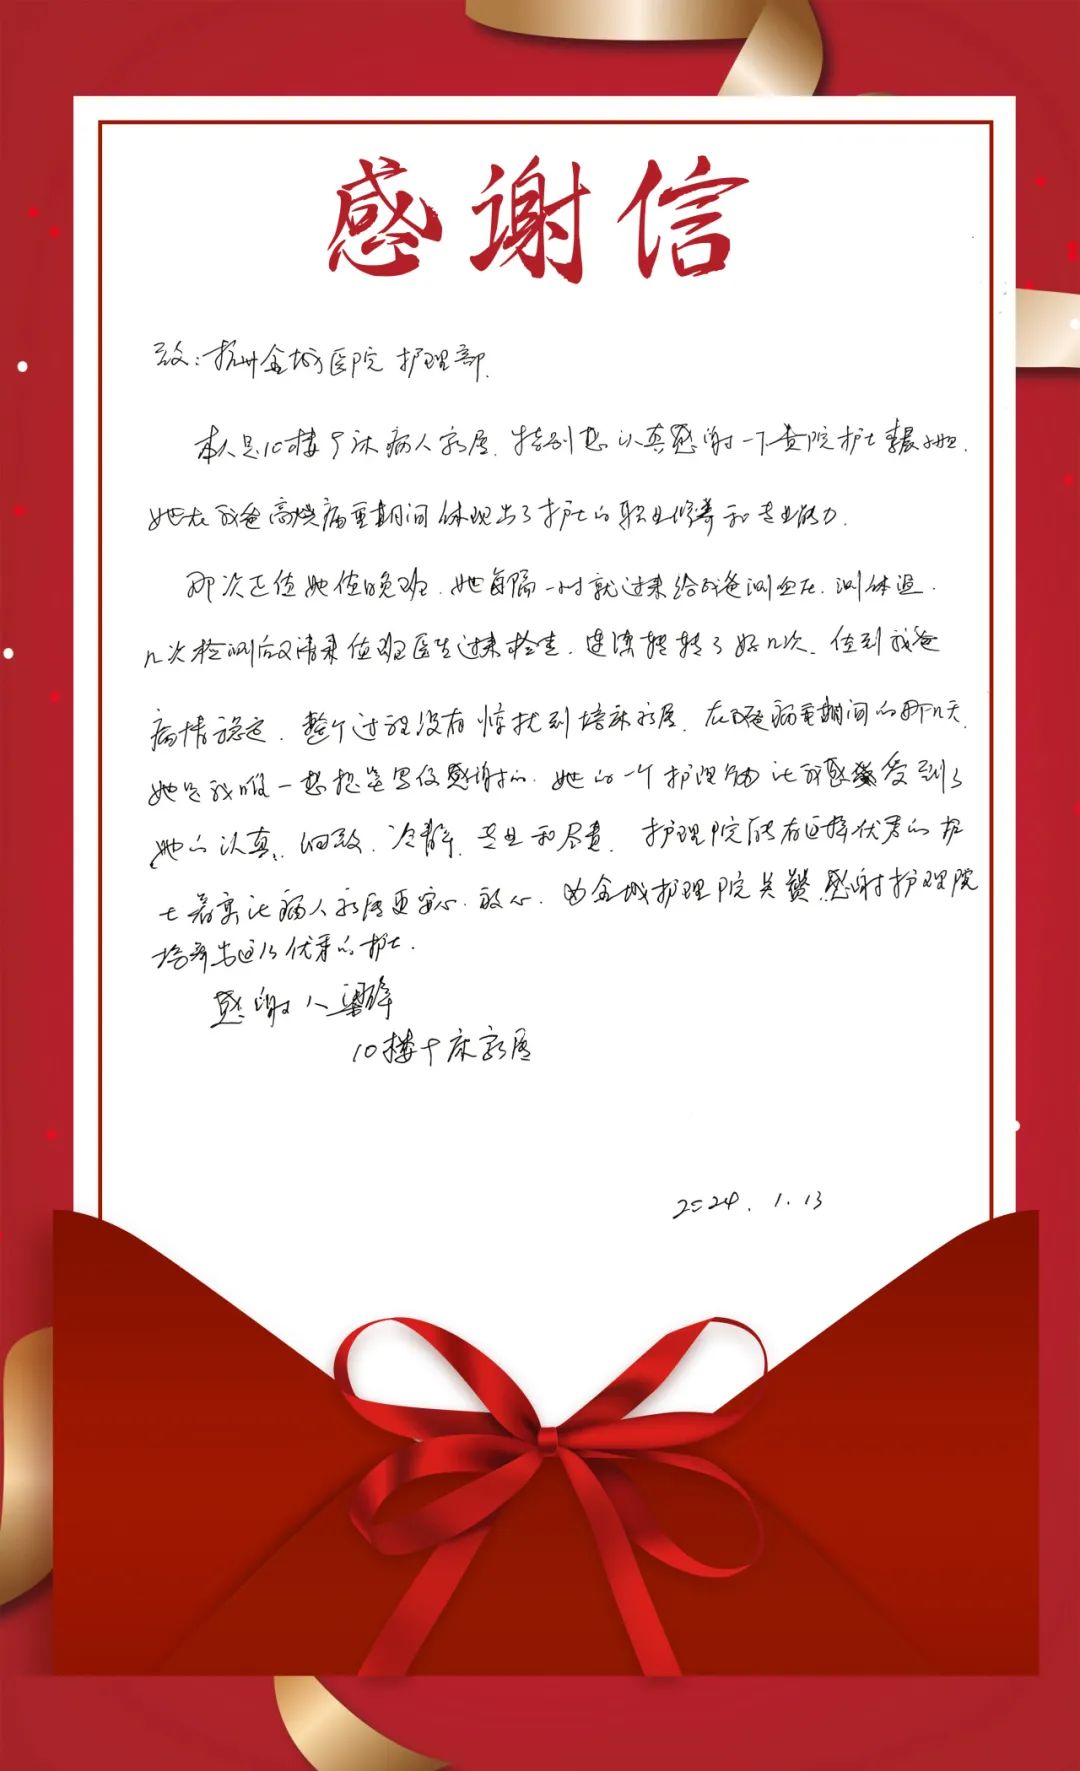 感谢信
致：杭州金城医院 护理部.
本人是10楼 床病人家属. 特别想认真感谢一下贵院护士
她在我爸高烧病重期间体现出了护士的职业修养和专业能力.
那次正值她值晚班. 她每隔一小时就过来给我爸测血压. 测体温.
几次检测后又请来值班医生过来检查. 连续 了好几次. 值到我爸
病情稳定. 整个过程没有惊扰到陪床家属. 在我爸病重期间的那几天.
她是我唯一想提笔写信感谢的. 她的一个护理 让我感受到了
她的认真、细致、冷静、专业和尽责. 护理院能有这样优秀的护
士着实让病人家属更安心. 放心. 为金城护理院点赞. 感谢护理院
培养出这么优秀的护士.
感谢人
10楼十床家属
2024. 1. 13